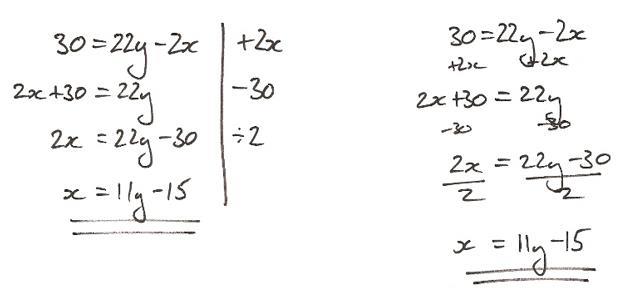 30 = 22y - 2x | +2x
2x + 30 = 22y | - 30
2x = 22y - 30 | ÷ 2
x = 11y - 15
30 = 22y - 2x
+2x +2x
2x + 30 = 22y
-30 -30
2x = 22y - 30
2 2
x = 11y - 15